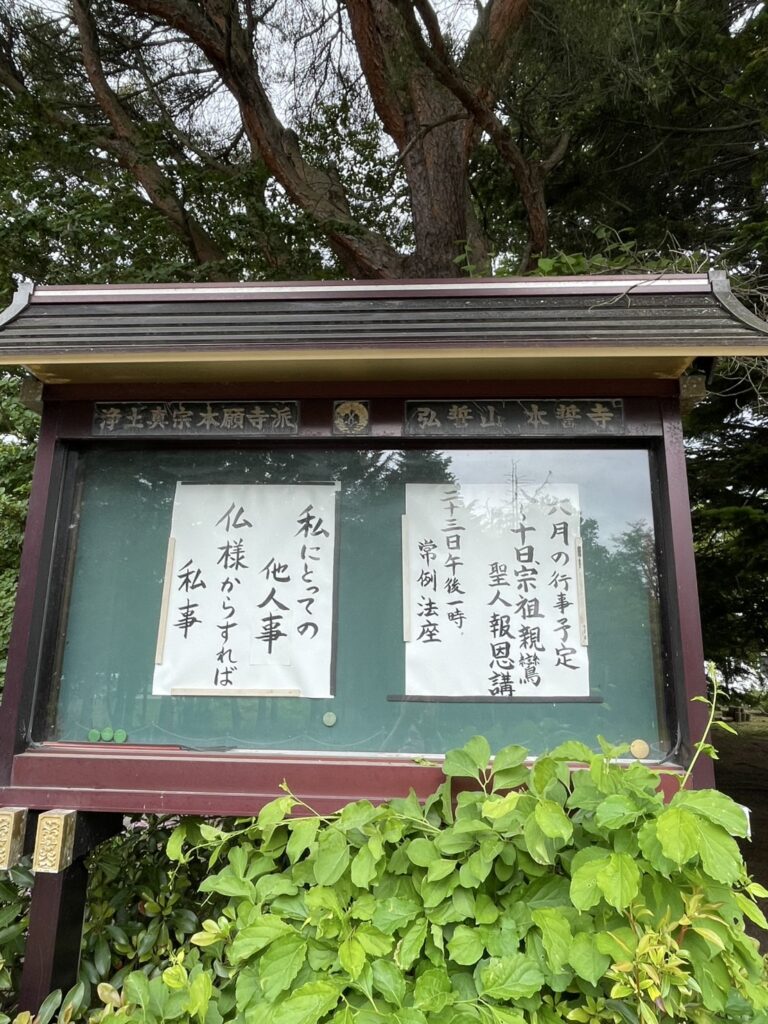 浄土真宗本願寺派
弘誓山 本誓寺
月の行事予定
十日宗祖親鸞
聖人報恩講
二十三日午後一時
常例法座
私にとっての
他人事
仏様からすれば
私事